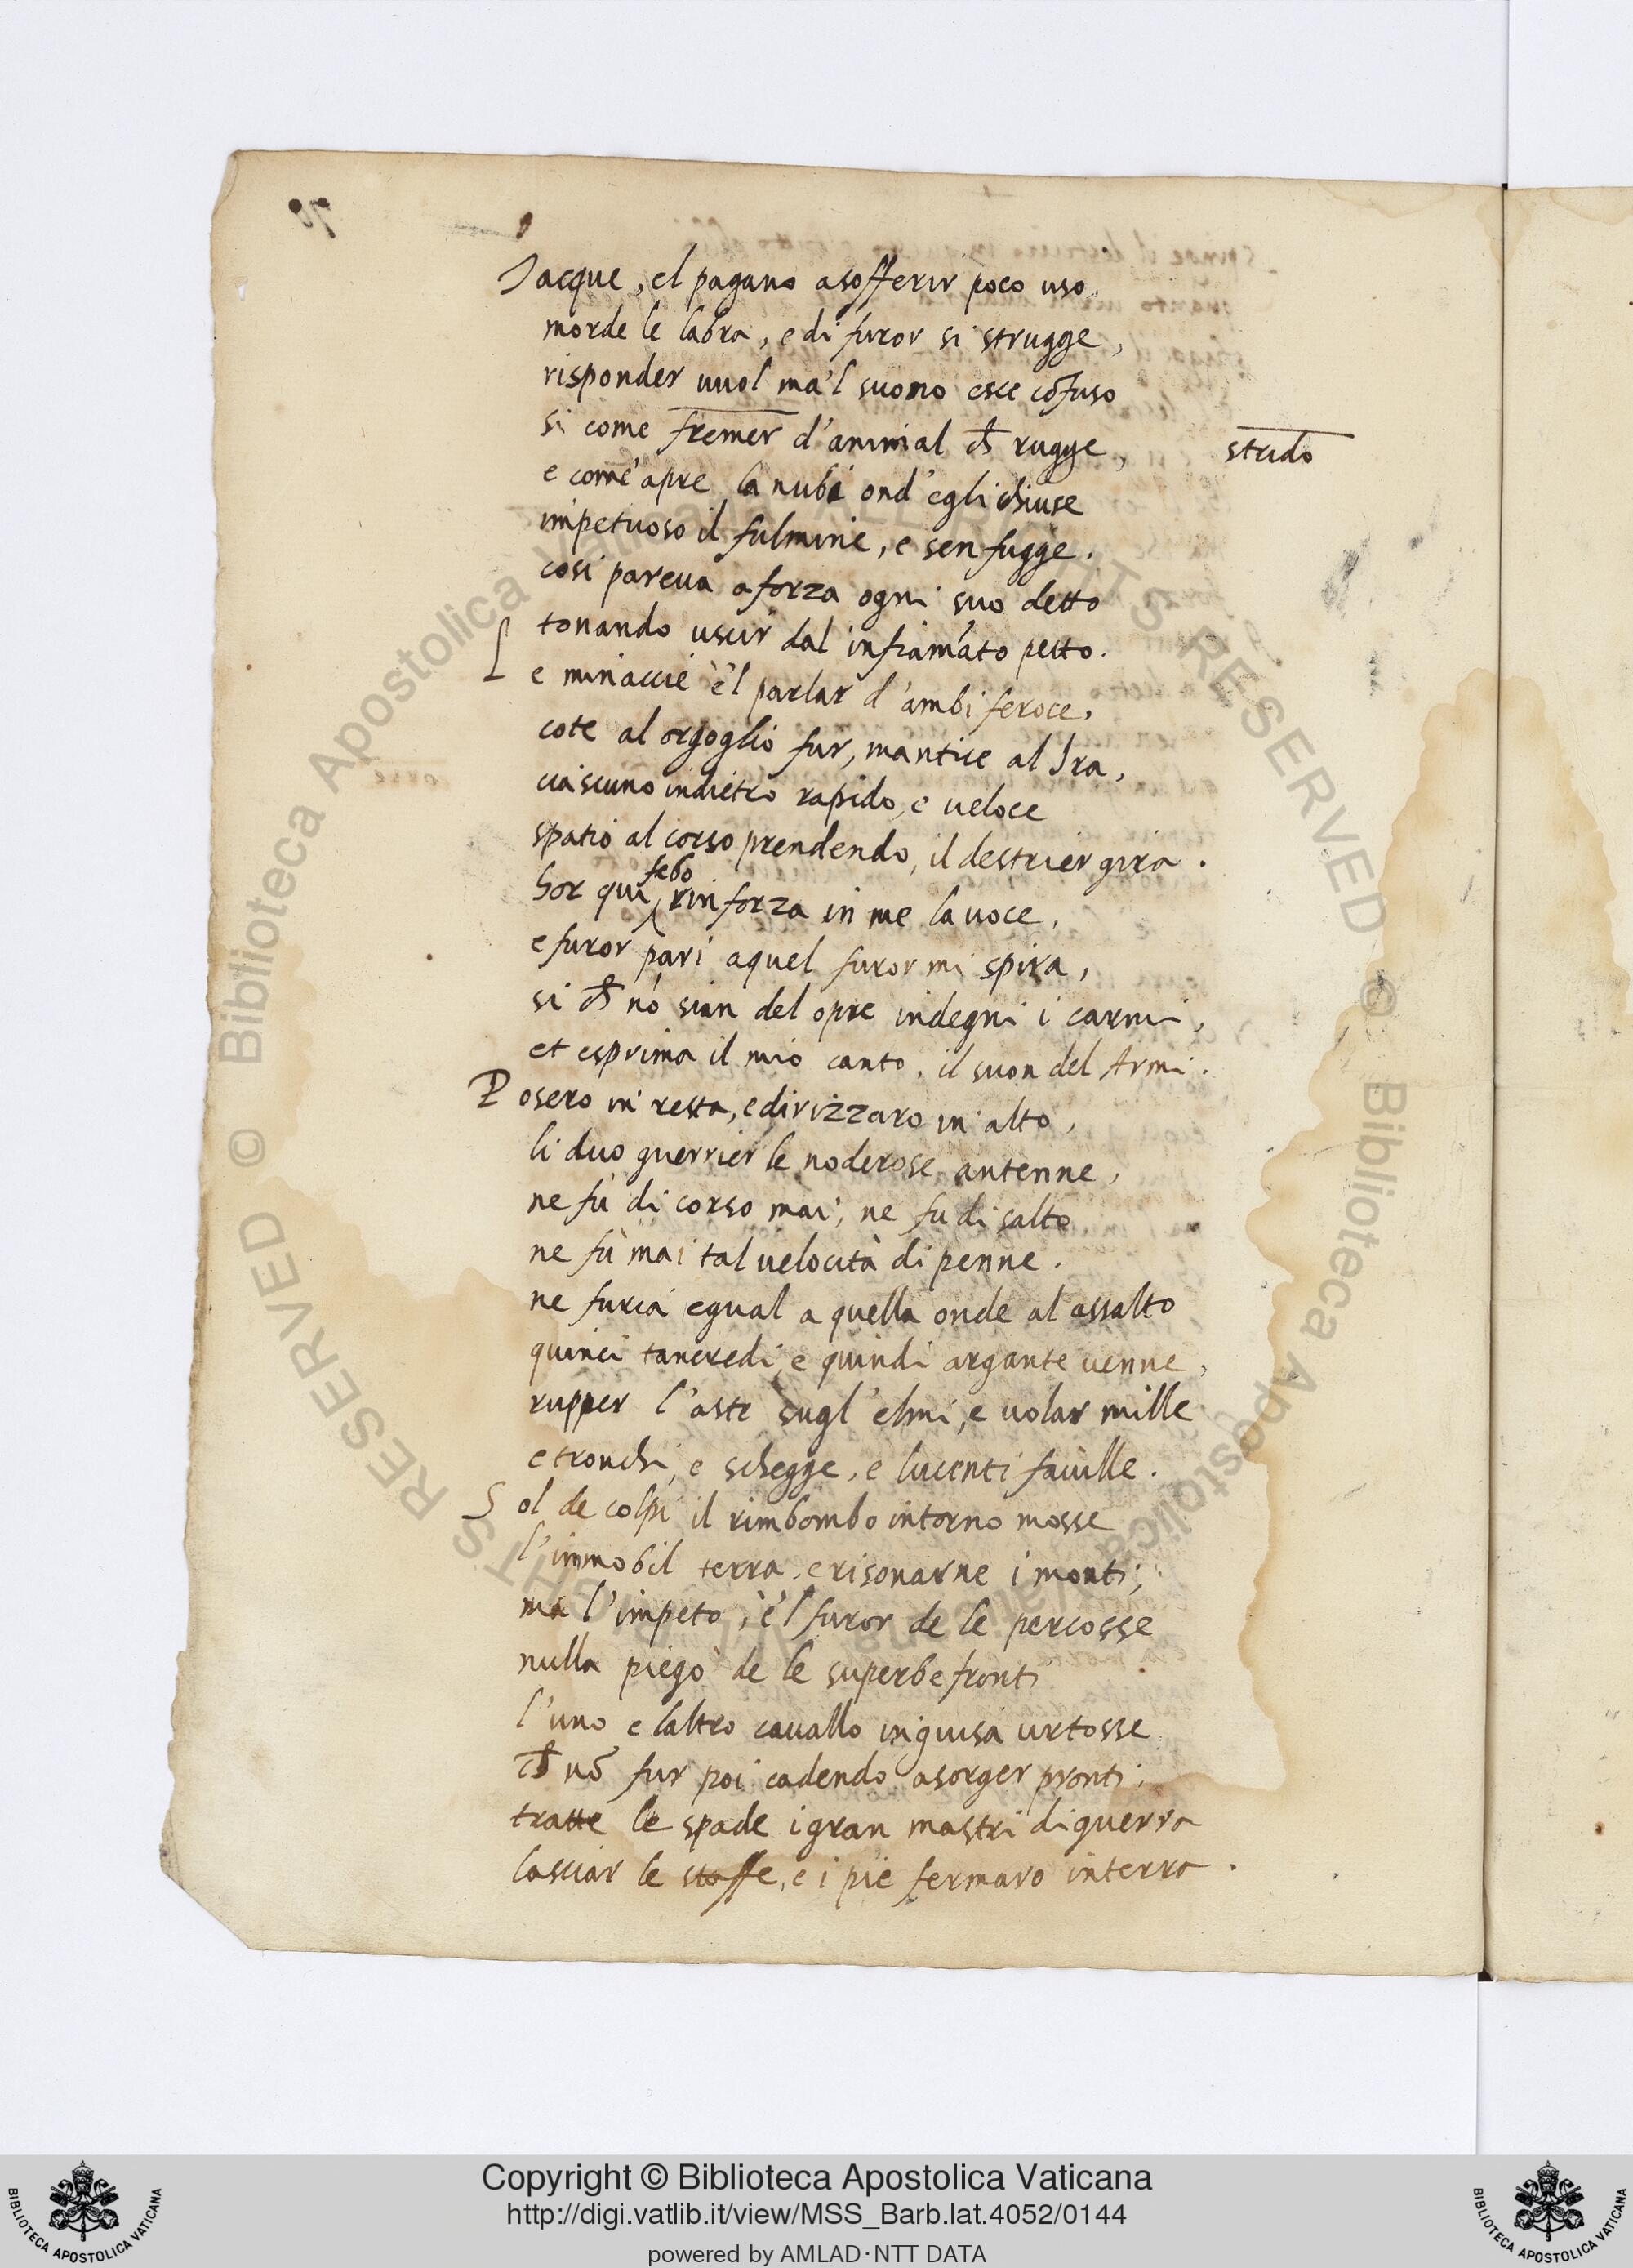 Tacque, el pagano a sofferir poco uso,
morde le labra, e di furor si strugge,
risponder uuol ma'l suono esce cõfuso
si come fremer d'animal ch̃ rugge,
strido
e come apre la nubi ond'egli chiuse
impetuoso il fulmine, e sen fugge.
cosi pareua a forza ogni suo detto
tonando uscir dal infiam̃ato petto.
Le minaccie è'l parlar d'ambi feroce,
cote al orgoglio fur, mantice al Ira,
ciascuno indietro rapido, e ueloce
spatio al corso prendendo, il destrier gira.
febo
hor qui rinforza in me la uoce,
e furor pari a quel furor mi spira,
si ch̃ nõ sian del opre indegni i carmi,
et esprima il mio canto, il suon del Armi.
Posero in resta, e dirizzaro in alto,
li duo guerrier le noderose antenne,
ne fù di corso mai, ne fu di salto
ne fù mai tal uelocità di penne.
ne furia egual a quella onde al assalto
quinci tancredi, e quindi argante uenne,
rupper l'aste sugl'elmi, e uolar mille
e tronchi, e schegge, e lucenti fauille.
Sol de colpi il rimbombo intorno mosse
l'immobil terra, e risonarne i monti,
ma l'impeto, è'l furor de le percosse
nulla piegò de le superbe fronti
l'uno e laltro cauallo in guisa urtosse
ch̃ nõ fur poi cadendo a sorger pronti.
tratte le spade i gran mastri di guerra
lasciar le staffe, e i piè fermaro in terra.
Copyright © Biblioteca Apostolica Vaticana
http://digi.vatlib.it/view/MSS_Barb.lat.4052/0144
powered by AMLAD·NTT DATA
BIBLIOTECA APOSTOLICA VATICANA
BIBLIOTECA APOSTOLICA VATICANA